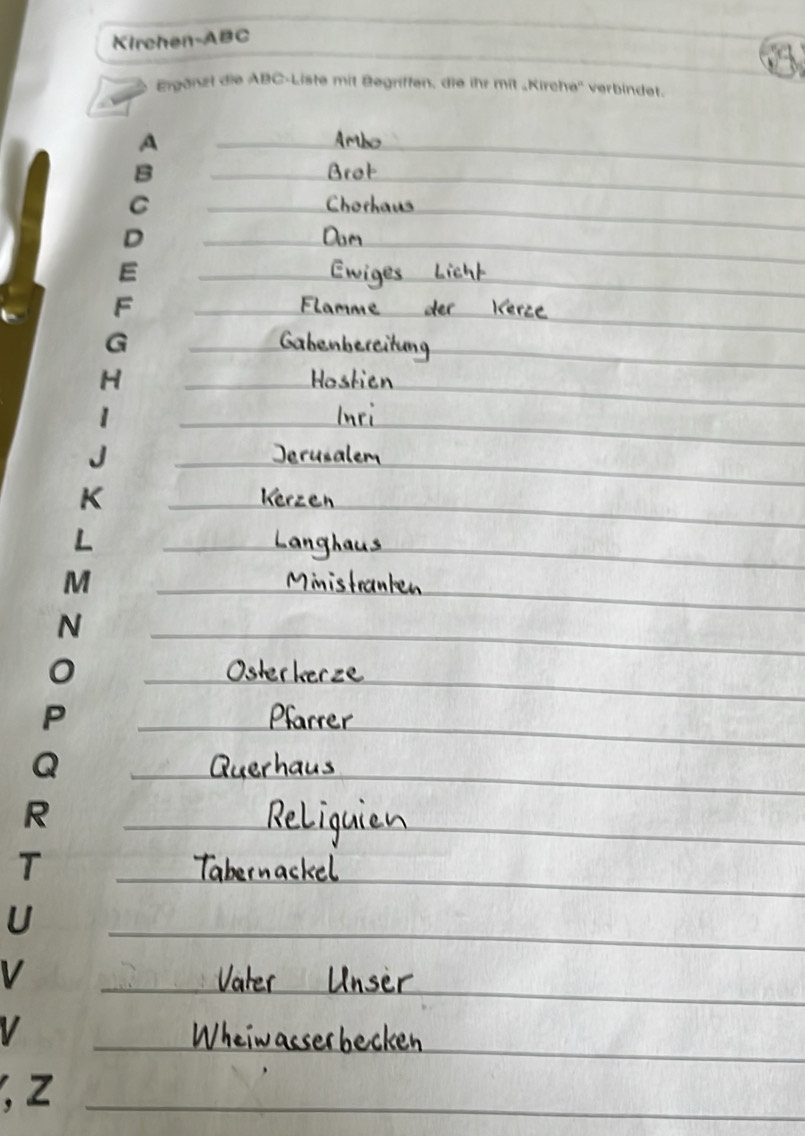 Kirchen-ABC
Ergänzt die ABC-Liste mit Begriffen, die ihr mit „Kirche" verbindet.
A Ambo
B Brot
C Chorhaus
D Dom
E Ewiges Licht
F Flamme der Kerze
G Gabenbereitung
H Hostien
I Inri
J Jerusalem
K Kerzen
L Langhaus
M Ministranten
N
O Osterkerze
P Pfarrer
Q Querhaus
R Reliquien
T Tabernackel
U
V Vater Unser
V Wheiwasserbecken
, Z